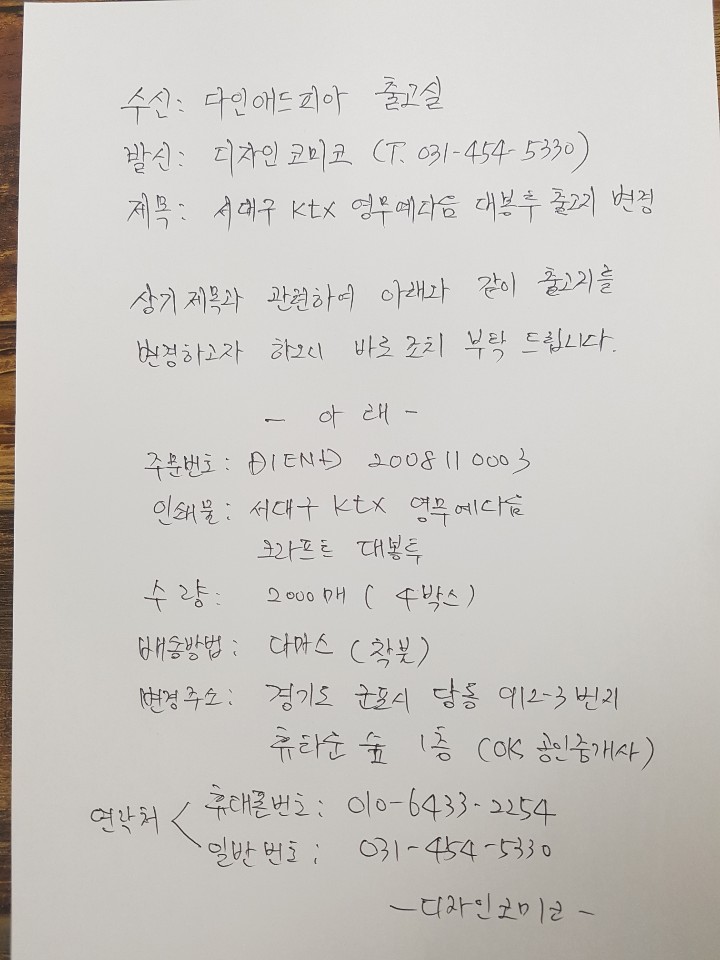 수신: 다인애드피아 출고실
발신: 디자인코미코 (T. 031-454-5330)
제목: 서대구 ktx 영무예다음 대봉투 출고지 변경
상기 제목과 관련하여 아래와 같이 출고지를
변경하고자 하오니 바로 조치 부탁 드립니다.
- 아 래 -
주문번호: DIEND 200811 0003
인쇄물: 서대구 ktx 영무예다음
크라프트 대봉투
수 량: 2000매 ( 4박스)
배송방법: 다마스 (착불)
변경주소: 경기도 군포시 당동 912-3번지
휴타운 숲 1층 (OK 공인중개사)
연락처 < 휴대폰번호: 010-6433-2254
일반번호: 031-454-5330
-디자인코미코-